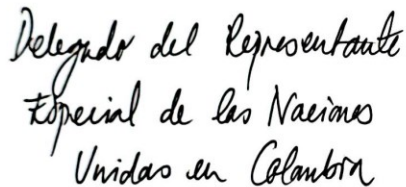 Delegado del Representante
Especial de las Naciones
Unidas en Colombia